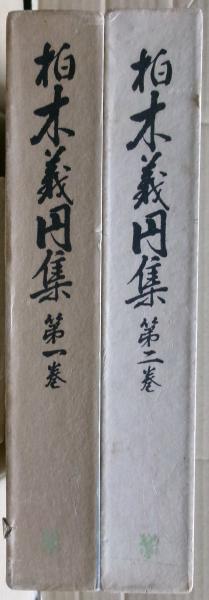 柏木義円集 第一巻
柏木義円集 第二巻